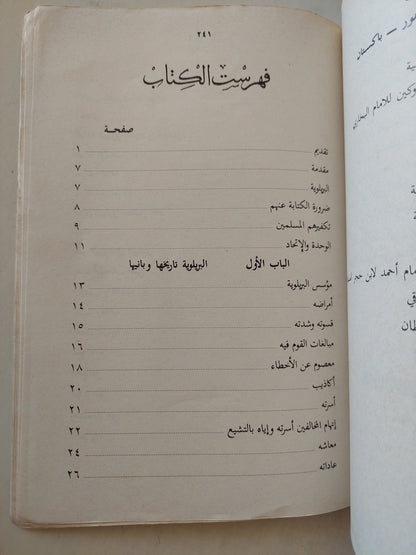 ٢٤١
فهرست الكتاب
صفحة
تقديم ١
مقدمة ٧
البريلوية ٧
ضرورة الكتابة عنهم ٨
تكفيرهم المسلمين ٩
الوحدة والإتحاد ١١
الباب الأول البريلوية تاريخها وبانيها
مؤسس البريلوية ١٣
أمراضه ١٤
قسوته وشدته ١٥
مبالغات القوم فيه ١٦
معصوم عن الأخطاء ١٨
أكاذيب ٢٠
أسرته ٢١
إتهام المخالفين أسرته وإياه بالتشيع ٢٢
معاشه ٢٤
عاداته ٢٦
ور – باكستان
ية
وكين للامام البخاري
ة
ة
مام أحمد لابن حجر
قي
طان